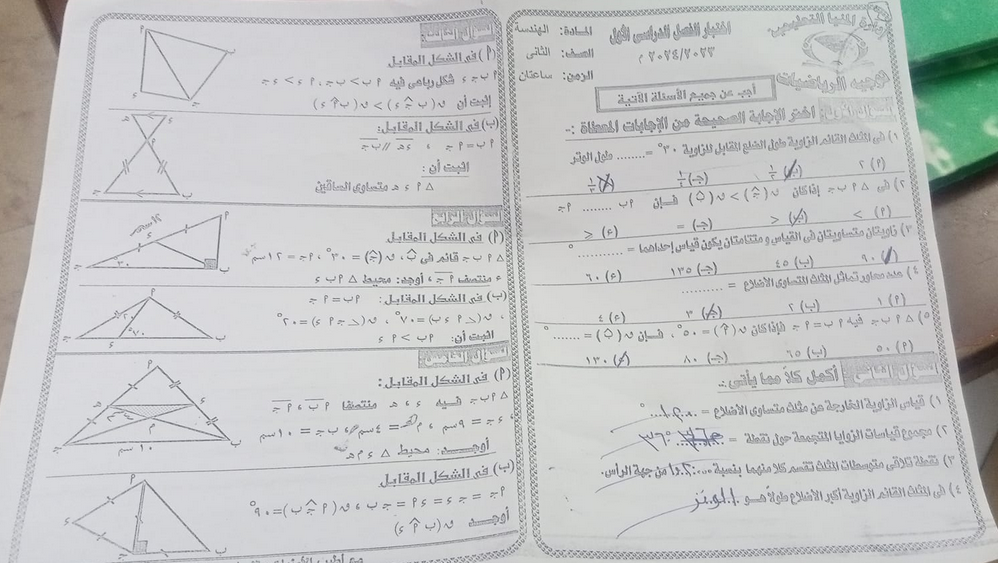 إدارة المنيا التعليمية
توجيه الرياضيات
اختبار الفصل الدراسي الأول
٢٠٢٤/٢٠٢٣ م
المادة: الهندسة
الصف: الثانى
الزمن: ساعتان
أجب عن جميع الأسئلة الآتية
السؤال الأول اختر الإجابة الصحيحة من الإجابات المعطاة :-
١) فى المثلث القائم الزاوية طول الضلع المقابل للزاوية ٣٠° = ........ طول الوتر
(أ) ٢ (ب) ١/٢ (جـ) ١/٤ (د) ١/٣
٢) فى Δ أ ب جـ إذا كان ق(جـ) > ق(ب) فإن أ ب ........ أ جـ
(أ) > (ب) < (جـ) = (د) ≤
٣) زاويتان متساويتان فى القياس و متتامتان يكون قياس إحداهما = ........ °
(أ) ٩٠ (ب) ٤٥ (جـ) ١٣٥ (د) ٦٠
٤) عدد محاور تماثل المثلث المتساوى الأضلاع = ..........
(أ) ١ (ب) ٢ (جـ) ٣ (د) ٤
٥) Δ أ ب جـ فيه أ ب = أ جـ فإذا كان ق(أ) = ٥٠°، فإن ق(ب) = ....... °
(أ) ٥٠ (ب) ٦٥ (جـ) ٨٠ (د) ١٣٠
السؤال الثانى أكمل كلاً مما يأتى :-
١) قياس الزاوية الخارجة عن مثلث متساوى الأضلاع = °
٢) مجموع قياسات الزوايا المتجمعة حول نقطة = ٣٦٠°
٣) نقطة تلاقى متوسطات المثلث تقسم كلاً منهما بنسبة من جهة الرأس.
٤) فى المثلث القائم الزاوية أكبر الأضلاع طولاً هو الوتر
السؤال الثالث
(أ) فى الشكل المقابل
أ ب جـ د شكل رباعى فيه أ ب > ب جـ، أ د > د جـ
إثبت أن ق(ب جـ د) > ق(ب أ د)
(ب) فى الشكل المقابل:
أ ب = أ جـ ، د هـ // ب جـ
اثبت أن:
Δ أ د هـ متساوى الساقين
السؤال الرابع
(أ) فى الشكل المقابل
Δ أ ب جـ قائم فى ب، ق(جـ) = ٣٠°، أ جـ = ١٢ سم
د منتصف أ جـ، أوجد: محيط Δ أ ب د
(ب) فى الشكل المقابل: أ ب = أ جـ
، ق(∠ أ د ب) = ٧٠° ، ق(∠ جـ أ د) = ٢٠°
اثبت أن: أ ب > أ د
السؤال الخامس
(أ) فى الشكل المقابل:
Δ أ ب جـ فيه د ، هـ منتصفا أ ب ، أ جـ
، د جـ = ٩ سم ، م هـ = ٤ سم ، ب جـ = ١٠ سم
أوجد: محيط Δ د م هـ
١٠ سم
(ب) فى الشكل المقابل
أ جـ = جـ د = د أ = جـ ب ، ق(أ جـ ب) = ٩٠°
أوجد ق(ب أ د)